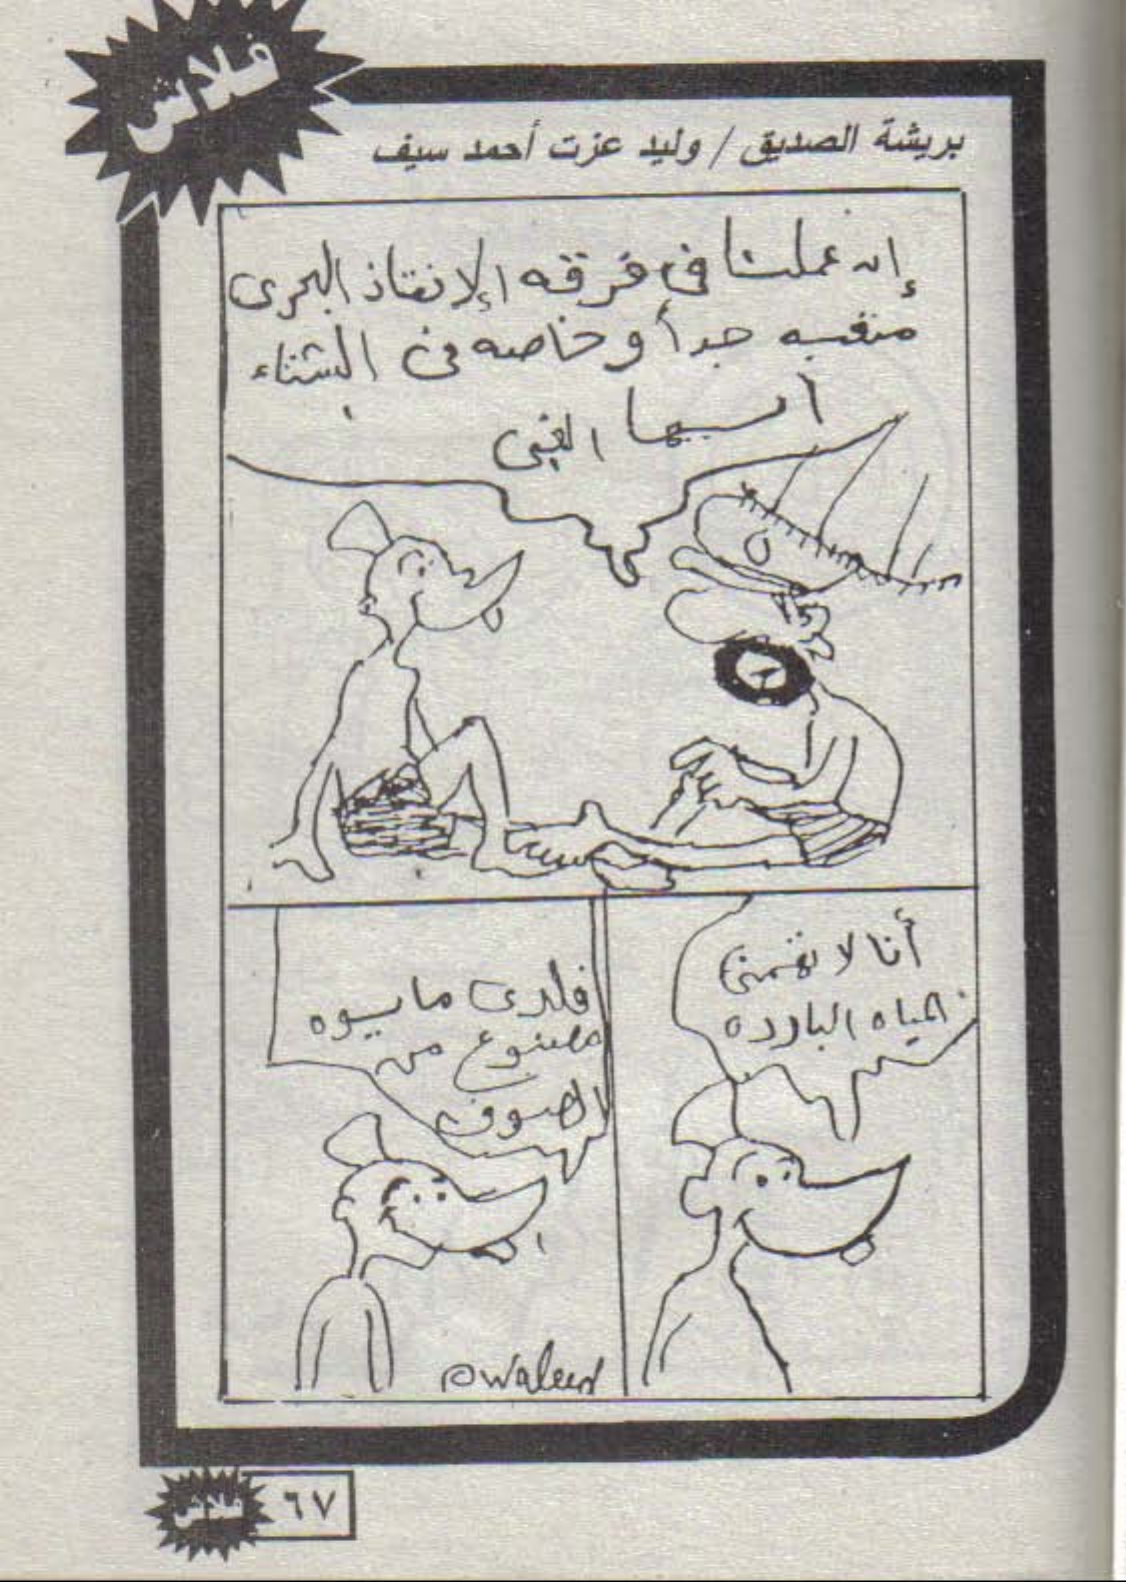 فلاش
بريشة الصديق / وليد عزت أحمد سيف
إن عملنا فى فرقه الإنقاذ البحرى
متعبه جداً وخاصه فى الشتاء
ايها الغبى
أنا لا تهمنى
المياه البارده
فلدى مايوه
مصنوع من
الصوف
©waleed
٦٧
فلاش